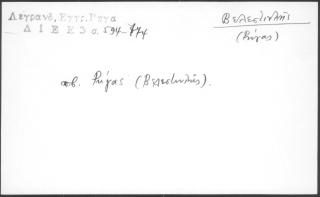 Λεγρανδ, Εγγρ. Ρηγα
Δ Ι Ε Ε 3 σ. 594-774
Βελεστινλῆς
(Ρήγας)
πβ. Ρήγας (Βελεστινλῆς).